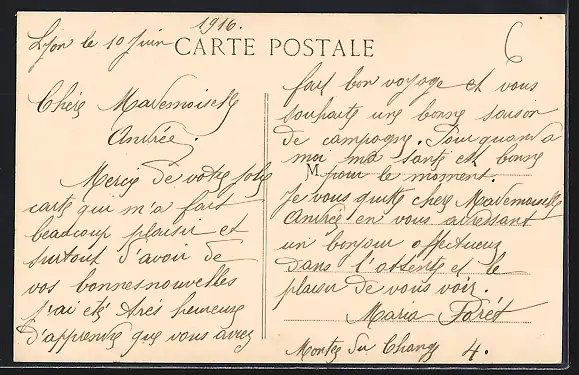 Lyon le 10 Juin 1916.
CARTE POSTALE
6
Chère Mademoiselle
Andrée.
Merçis de votre jolie
carte qui m'a fait
beaucoup plaisir et
surtout d'avoir de
vos bonnes nouvelles
j'ai été très heureuse
d'apprendre que vous avez
fait bon voyage et vous
souhaite une bonne saison
de campagne. Pour quand a
moi ma santé est bonne
M pour le moment.
Je vous quitte chère Mademoiselle
Andrée en vous adressant
un bonjour affectueux
dans l'attente et le
plaisir de vous voir.
Maria Forêt
Montée du Change 4.